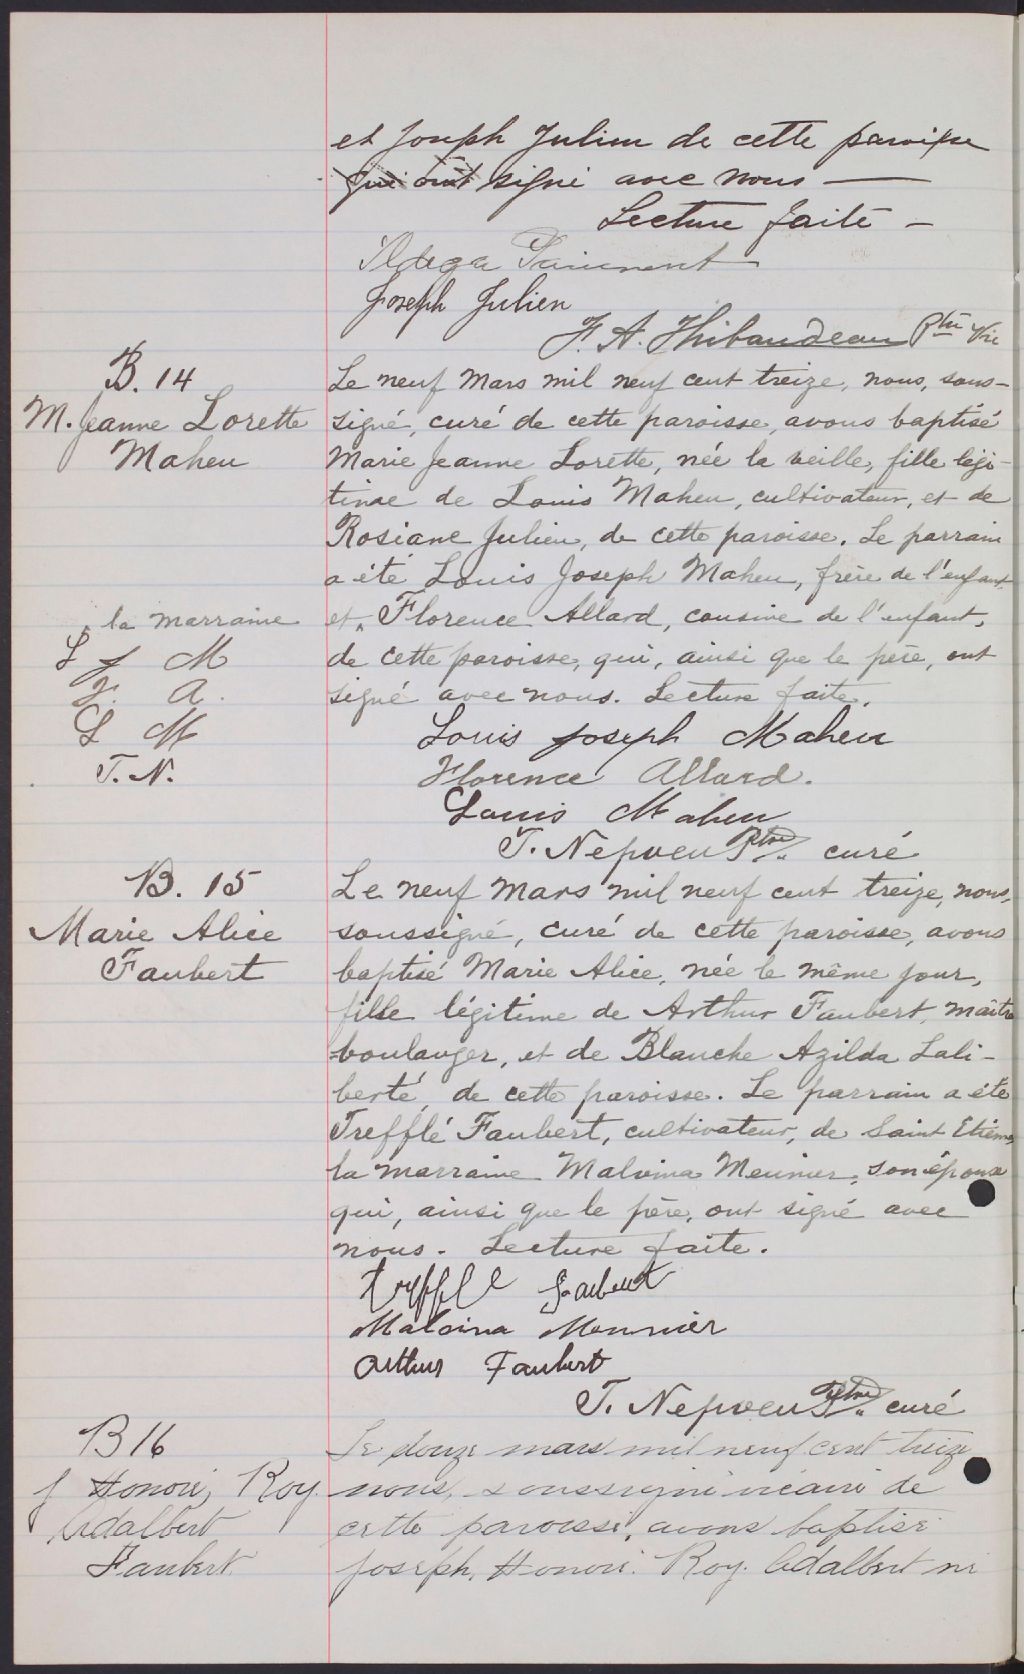 et Joseph Julien de cette paroisse
qui ont signé avec nous —
Lecture faite —
Joseph Julien
F. A. Thibaudeau Ptre Vic
B. 14
M. Jeanne Lorette
Maheu
Le neuf Mars mil neuf cent treize, nous, sous-
signé, curé de cette paroisse, avons baptisé
Marie Jeanne Lorette, née la veille, fille légi-
time de Louis Maheu, cultivateur, et de
Rosiane Julien, de cette paroisse. Le parrain
a été Louis Joseph Maheu, frère de l'enfant
et ^ Florence Allard, cousine de l'enfant,
^ la marraine
L J M
F. A.
L M
T. N.
de cette paroisse, qui, ainsi que le père, ont
signé avec nous. Lecture faite.
Louis Joseph Maheu
Florence Allard.
Louis Maheu
T. Nepveu Ptre. curé
B. 15
Marie Alice
Faubert
Le neuf Mars mil neuf cent treize, nous,
soussigné, curé de cette paroisse, avons
baptisé Marie Alice, née le même jour,
fille légitime de Arthur Faubert, maître
-boulanger, et de Blanche Azilda Lali-
berté, de cette paroisse. Le parrain a été
Trefflé Faubert, cultivateur, de Saint Etienne,
la marraine Malvina Meunier, son épouse
qui, ainsi que le père, ont signé avec
nous. Lecture faite.
trffle Faubert
Malvina Meunier
Arthur Faubert
T. Nepveu Ptre. curé
B 16
J Honoré, Roy.
Adalbert
Faubert
Le douze mars mil neuf cent treize
nous, soussigné vicaire de
cette paroisse, avons baptisé
Joseph, Honoré. Roy. Adalbert né